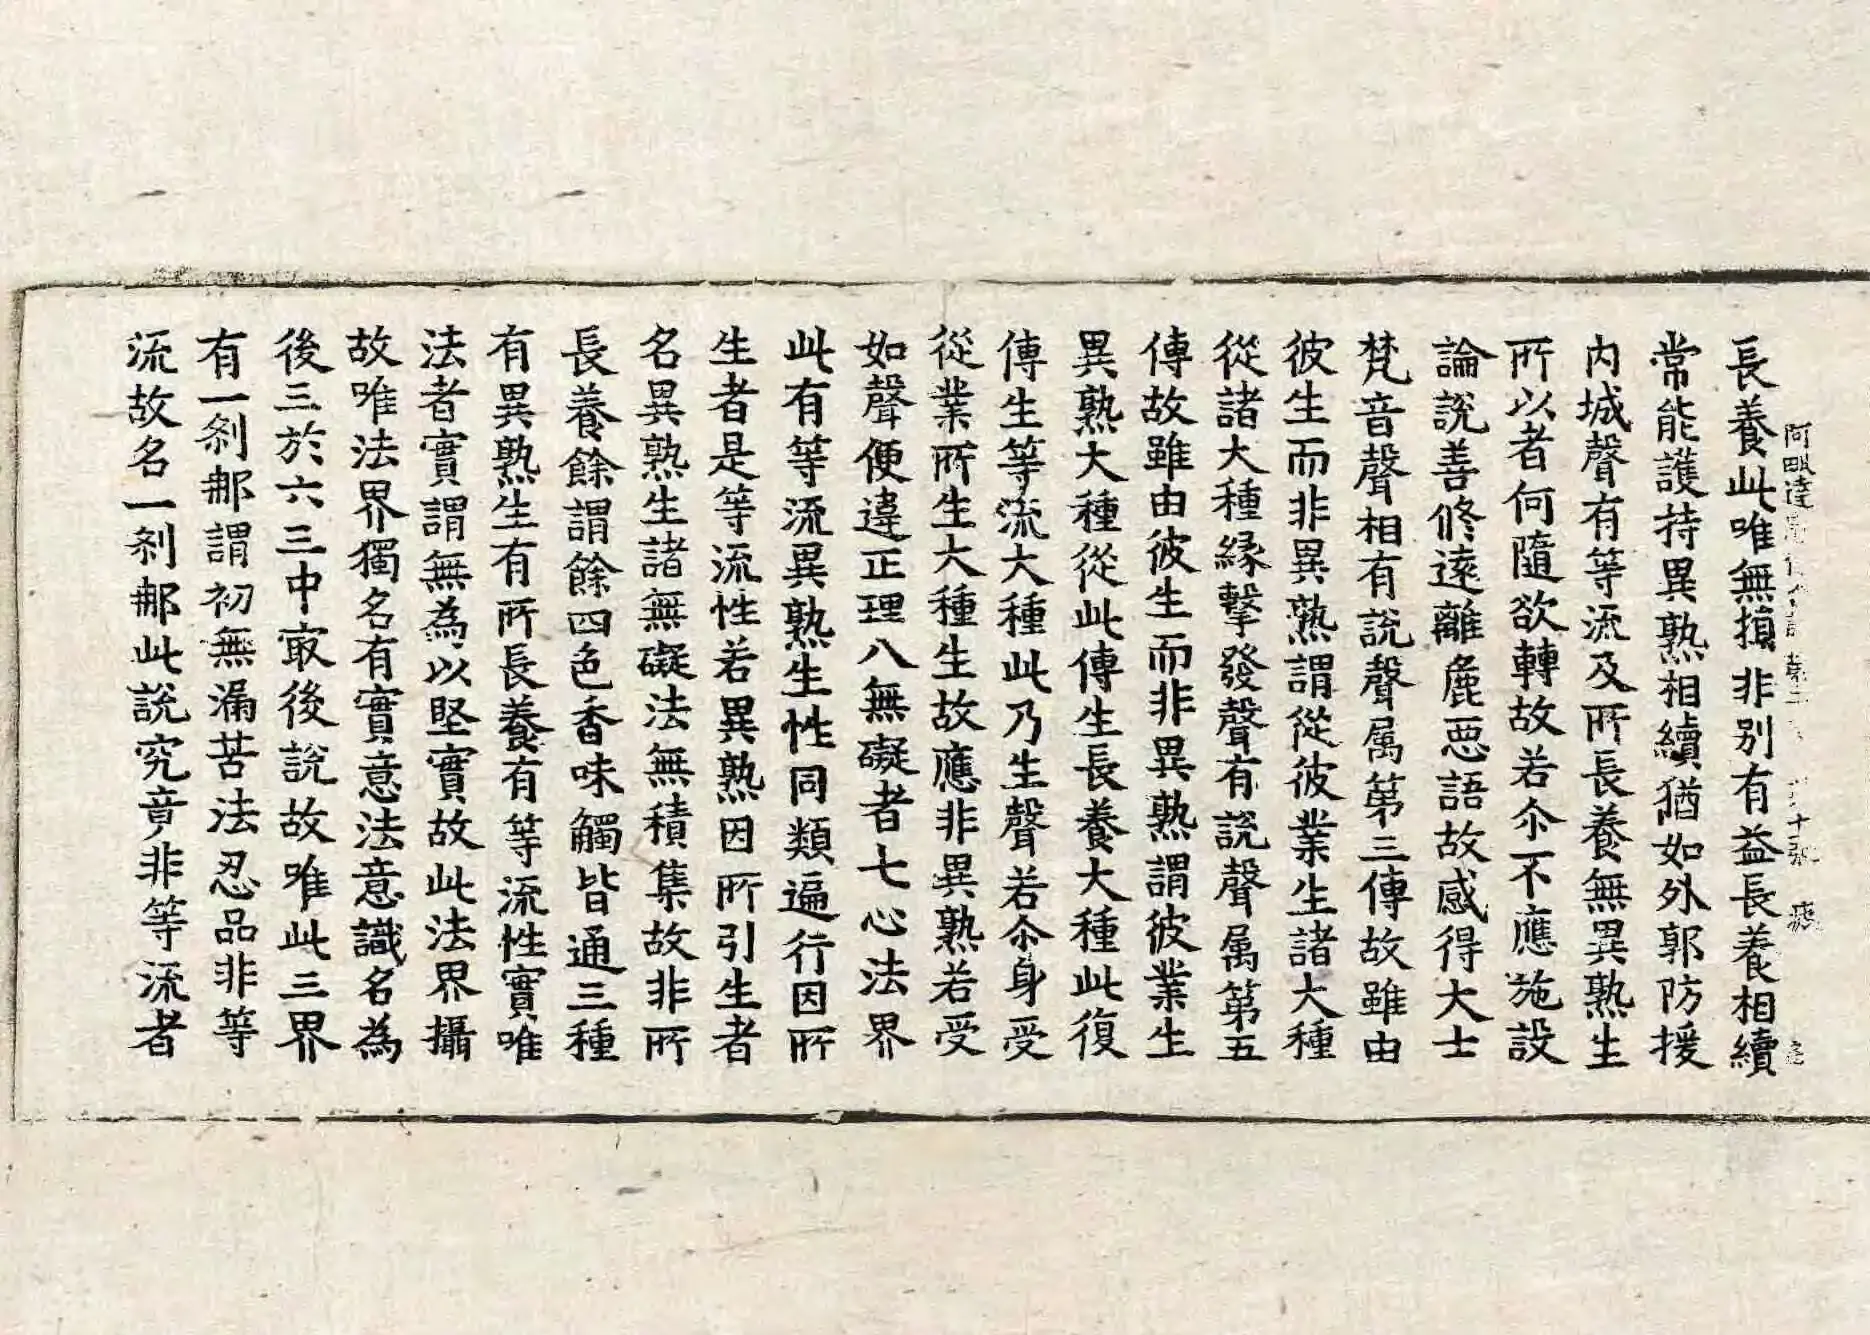 阿毗達
第二
十張
長養此唯無損非別有益長養相續
常能護持異熟相續猶如外郭防援
内城聲有等流及所長養無異熟生
所以者何隨欲轉故若尒不應施設
論說善修遠離麁惡語故感得大士
梵音聲相有說聲属第三傳故雖由
彼生而非異熟謂從彼業生諸大種
從諸大種緣擊發聲有說聲属第五
傳故雖由彼生而非異熟謂彼業生
異熟大種從此傳生長養大種此復
傳生等流大種此乃生聲若尒身受
從業所生大種生故應非異熟若受
如聲便違正理八無礙者七心法界
此有等流異熟生性同類遍行因所
生者是等流性若異熟因所引生者
名異熟生諸無礙法無積集故非所
長養餘謂餘四色香味觸皆通三種
有異熟生有所長養有等流性實唯
法者實謂無為以堅實故此法界攝
故唯法界獨名有實意法意識名為
後三於六三中㝡後說故唯此三界
有一刹那謂初無漏苦法忍品非等
流故名一刹那此說究竟非等流者